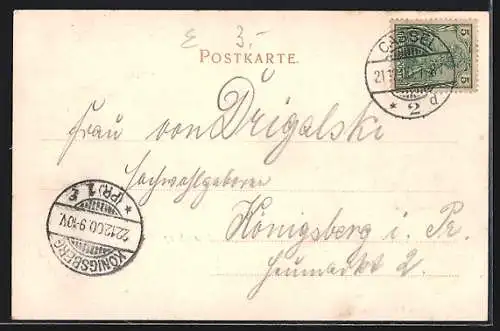 ε 3.-
POSTKARTE.
5 5
CASSEL
*2P
Frau von Drigalski
Hochwohlgeboren
Königsberg i. Pr.
Heumarkt 2.
KÖNIGSBERG
22.12.00.9-10V.
* (PR) 1 f